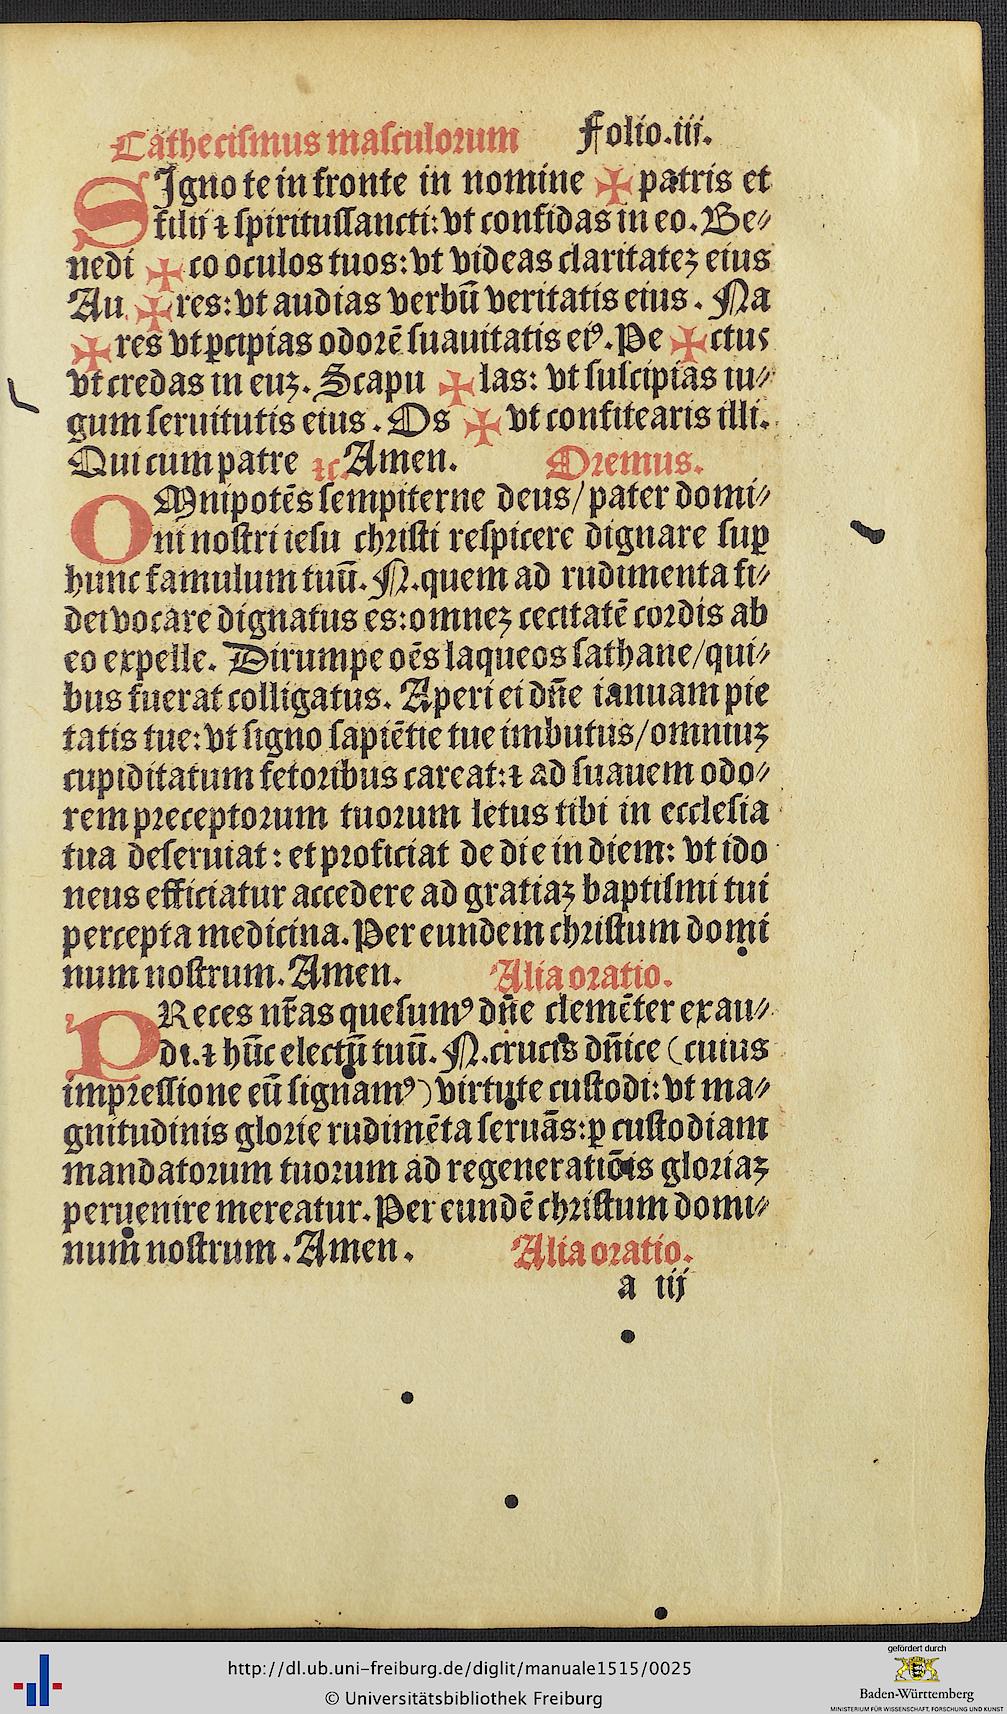 Cathecismus masculorum Folio.iii.
SIgno te in fronte in nomine ✠ patris et
filij ⁊ spiritussancti: vt confidas in eo. Be⸗
nedi ✠ co oculos tuos: vt videas claritateꝫ eius
Au ✠ res: vt audias verbū veritatis eius. Na
✠ res vt ꝑcipias odorē suauitatis eiꝰ. Pe ✠ ctus
vt credas in euꝫ. Scapu ✠ las: vt suscipias iu⸗
gum seruitutis eius. Os ✠ vt confitearis illi.
Qui cum patre ⁊c. Amen. Oremus.
OMnipotēs sempiterne deus/ pater domi⸗
ni nostri iesu christi respicere dignare suꝑ
hunc famulum tuū. N. quem ad rudimenta fi⸗
dei vocare dignatus es: omneꝫ cecitatē cordis ab
eo expelle. Dirumpe oēs laqueos sathane/ qui⸗
bus fuerat colligatus. Aperi ei dn̄e ianuam pie
tatis tue: vt signo sapiētie tue imbutus/ omniuꝫ
cupiditatum fetoribus careat: ⁊ ad suauem odo⸗
rem preceptorum tuorum letus tibi in ecclesia
tua deseruiat: et proficiat de die in diem: vt ido
neus efficiatur accedere ad gratiaꝫ baptismi tui
percepta medicina. Per eundem christum domi
num nostrum. Amen. Alia oratio.
PReces nr̄as quesumꝰ dn̄e clemēter exau⸗
di. ⁊ hūc electū tuū. N. crucis dn̄ice (cuius
impressione eū signamꝰ) virtute custodi: vt ma⸗
gnitudinis glorie rudimēta seruās: ꝑ custodiam
mandatorum tuorum ad regeneratiōis gloriaꝫ
peruenire mereatur. Per eundē christum domi⸗
num nostrum. Amen. Alia oratio.
a iij
http://dl.ub.uni-freiburg.de/diglit/manuale1515/0025
© Universitätsbibliothek Freiburg
gefördert durch
Baden-Württemberg
MINISTERIUM FÜR WISSENSCHAFT, FORSCHUNG UND KUNST